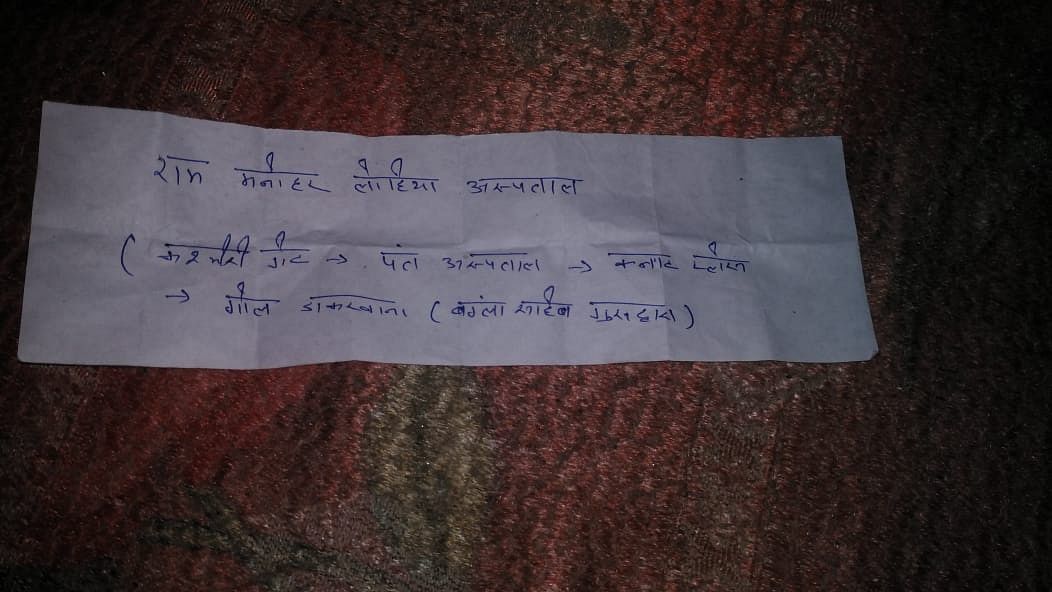 राम मनोहर लोहिया अस्पताल
( कश्मीरी गेट → पंत अस्पताल → कनाट प्लेस
→ गोल डाकखाना (बंगला साहेब गुरुद्वारा)